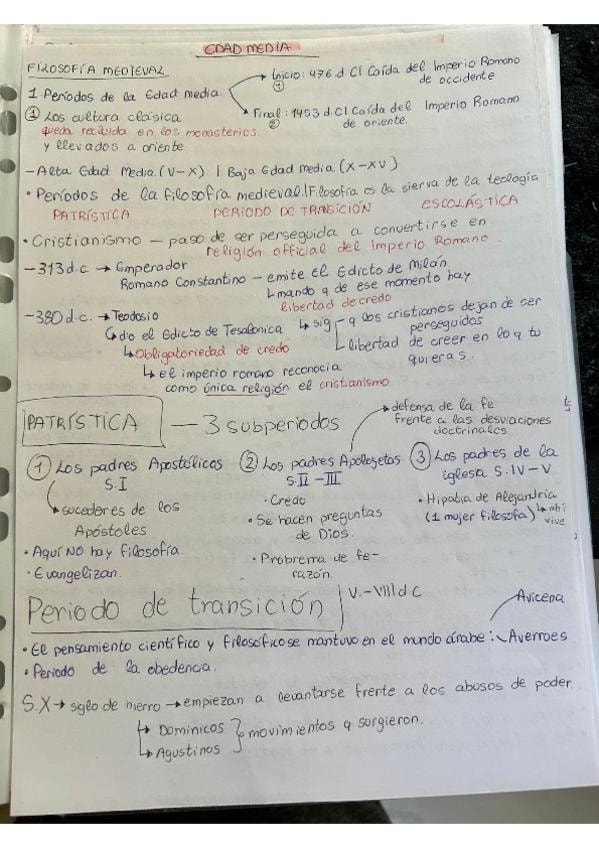 EDAD MEDIA
FILOSOFÍA MEDIEVAL
→ Inicio: 476 d.C| Caída del Imperio Romano
① de occidente
1. Períodos de la Edad media
→ Final: 1453 d.C| Caída del Imperio Romano
② de oriente.
① Los cultura clásica
queda recluida en los monasterios
y llevados a oriente
- Alta Edad Media (V-X) | Baja Edad media (X-XV)
• Períodos de la filosofía medieval. | Filosofía es la sierva de la teología
PATRÍSTICA PERIODO DE TRANSICIÓN ESCOLÁSTICA
• Cristianismo — paso de ser perseguida a convertirse en
religión official del Imperio Romano.
- 313 d.c → Emperador
Romano Constantino - emite El Edicto de Milán
↳ mando q de ese momento hay
libertad de credo
- 380 d.c. → Teodosio
↳ dio el Edicto de Tesalonica
↳ sig - q los cristianos dejan de ser
perseguidos
↳ Obligatoriedad de credo
libertad de creer en lo q tu
quieras.
↳ el imperio romano reconocia
como única religión el cristianismo
PATRÍSTICA — 3 subperiodos
→ defensa de la fe
frente a las desviaciones
doctrinales
① Los padres Apostólicos
S.I
↳ sucedores de los
Apóstoles
• Aquí NO hay filosofía.
• Evangelizan.
② Los padres Apologetas
S.II - III
• Credo
• Se hacen preguntas
de Dios.
• Probrema de fe-
razón.
③ Los padres de la
iglesa S.IV-V
• Hipatia de Alejandría
(1 mujer filosofa) ↳ ahí
vive
Periodo de transición | V.-VIII d.C
Avicena
• El pensamiento científico y filosófico se mantuvo en el mundo árabe: Averroes
• Periodo de la obedencia.
S.X → siglo de hierro → empiezan a levantarse frente a los abusos de poder
↳ Dominicos
↳ Agustinos } movimientos q surgieron.